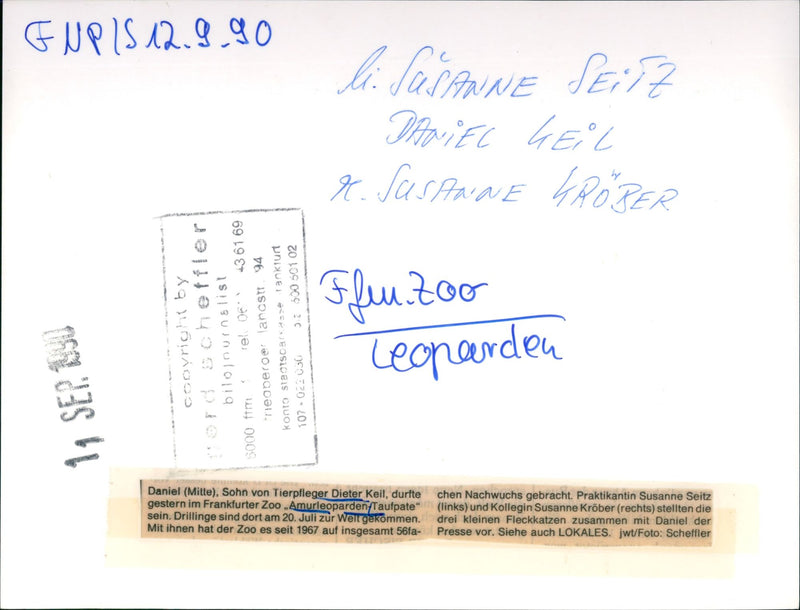 FNP/S 12.9.90
li. SUSANNE SEITZ
DANIEL KEIL
re. SUSANNE KRÖBER
copyright by
gerd scheffler
bildjournalist
6000 ffm
friedberger landstr 94
konto stadtsparkasse frankfurt
11 SEP. 1990
Ffm. Zoo
Leoparden
Daniel (Mitte), Sohn von Tierpfleger Dieter Keil, durfte
gestern im Frankfurter Zoo „Amurleoparden-Taufpate"
sein. Drillinge sind dort am 20. Juli zur Welt gekommen.
Mit ihnen hat der Zoo es seit 1967 auf insgesamt 56fa-
chen Nachwuchs gebracht. Praktikantin Susanne Seitz
(links) und Kollegin Susanne Kröber (rechts) stellten die
drei kleinen Fleckkatzen zusammen mit Daniel der
Presse vor. Siehe auch LOKALES. jwt/Foto: Scheffler